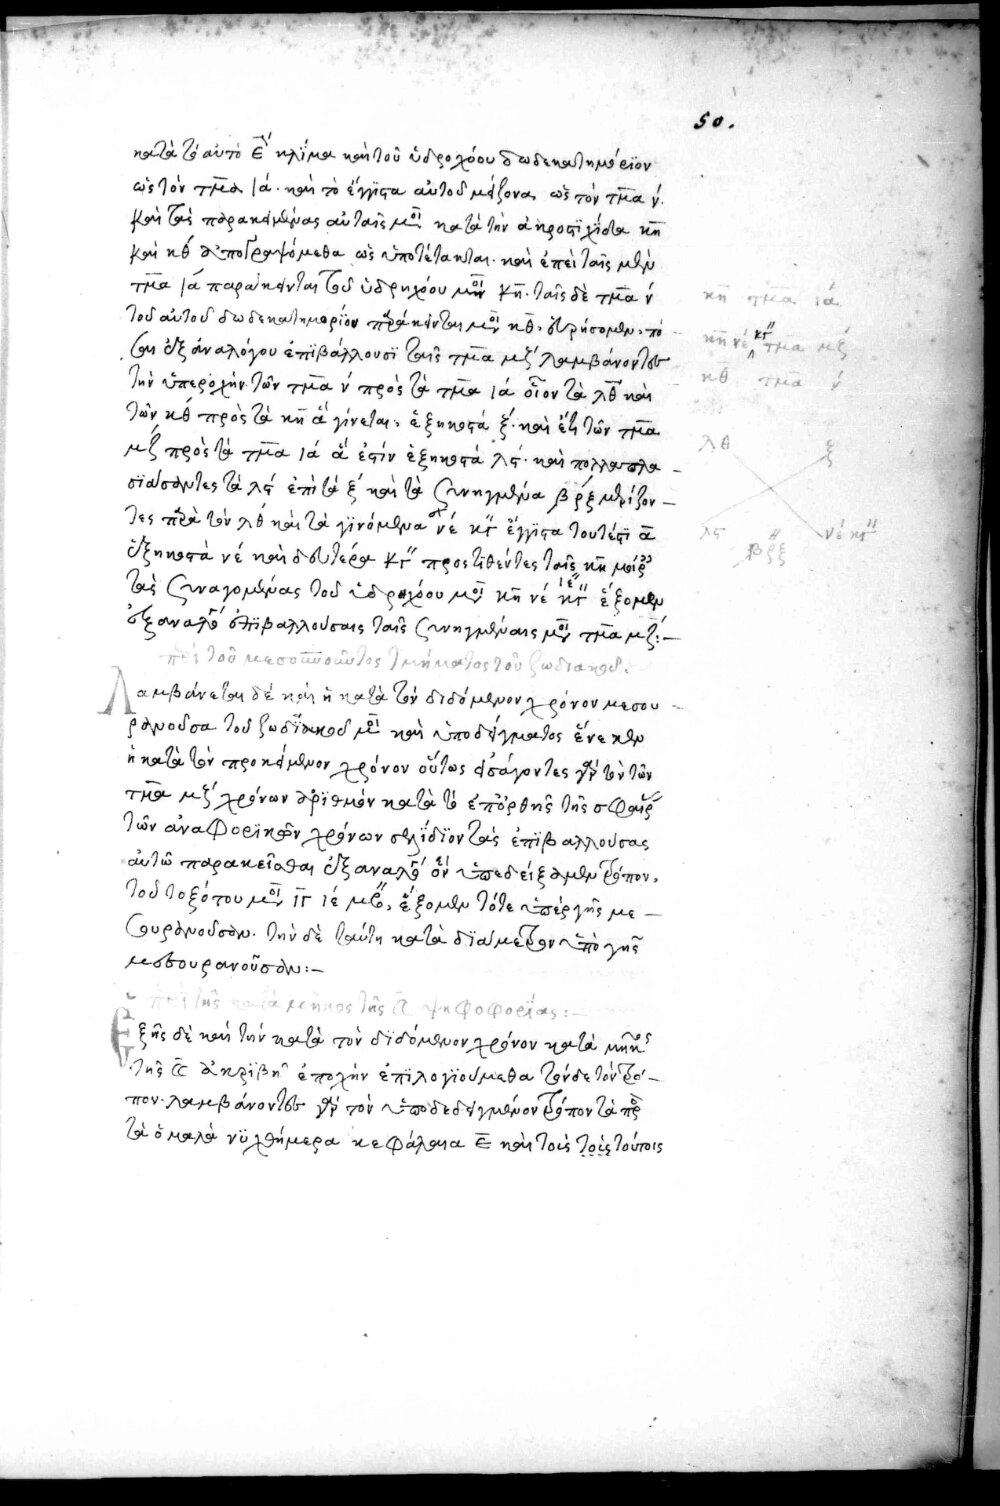 50.
κατὰ τὸ αὐτὸ ε̄ κλίμα καὶ τοῦ ὑδροχόου δωδεκατημόριον
ὡς τὸν τμα ιά. καὶ τὸ ἔγγιστα αὐτοῦ μείζονα ὡς τὸν τμα ν́.
καὶ τὰς παρακειμένας αὐταῖς μοι κατὰ τὴν ἀκροστιχίδα κη
καὶ κθ ἀπογραψόμεθα ὡς ὑποτέτακται. καὶ ἐπεὶ ταῖς μὲν
τμα ιά παράκεινται τοῦ ὑδρηχόου μοι κη. ταῖς δὲ τμα ν́
τοῦ αὐτοῦ δωδεκατημορίου παράκεινται μοι κθ. εὑρήσομεν πό-
σαι ἐξ ἀναλόγου ἐπιβάλλουσι ταῖς τμα μζ λαμβάνοντες
τὴν ὑπεροχὴν τῶν τμα ν́ πρὸς τὰ τμα ιά οἷον τὰ λθ καὶ
τῶν κθ πρὸς τὰ κη ἃ γίνεται ἑξηκοστά ξ. καὶ ἔτι τῶν τμα
μζ πρὸς τὰ τμα ιά ἅ ἐστιν ἑξηκοστά λς. καὶ πολλαπλα-
σιάσαντες τὰ λς ἐπὶ τὰ ξ καὶ τὰ συνηγμένα βρξ μερίζον-
τες παρὰ τὸν λθ καὶ τὰ γινόμενα νέ κγ ἔγγιστα τουτέστι α
ἑξηκοστὰ νέ καὶ δεύτερα κγ προστιθέντες ταῖς κη μοίρ
τὰς συναγομένας τοῦ ὑδροχόου μοι κη νέ κγ ἕξομεν
ἐξαναλό ἐπιβαλλούσαις ταῖς συνηγμέναις μοι τμα μζ:-
περὶ τοῦ μεσουρανοῦντος τμήματος τοῦ ζωδιακοῦ.
Λαμβάνεται δὲ καὶ ἡ κατὰ τὸν διδόμενον χρόνον μεσου-
ρανοῦσα τοῦ ζωδιακοῦ μοι καὶ ὑποδείγματος ἕνεκεν
ἡ κατὰ τὸν προκείμενον χρόνον οὕτως εἰσάγοντες γὰρ τὸν τῶν
τμα μζ χρόνων ἀριθμὸν κατὰ τὸ ἐπ ὀρθῆς τῆς σφαίρ
τῶν ἀναφορικῶν χρόνων σελίδιον τὰς ἐπιβαλλούσας
αὐτῶ παρακεῖσθαι ἐξαναλό ὃν ὑπεδείξαμεν τρόπον,
τοῦ τοξότου μοι ιγ ιέ μβ, ἕξομεν τότε ὑπὲρ γῆς με-
σουρανοῦσαν. τὴν δὲ ταύτη κατὰ διάμετρον ὑπὸ γῆς
μεσουρανοῦσαν:-
περὶ τῆς κατὰ μῆκος τῆς ☾ ψηφοφορίας:-
Ἑξῆς δὲ καὶ τὴν κατὰ τὸν διδόμενον χρόνον κατὰ μῆκος
τῆς ☾ ἀκριβῆ ἐποχὴν ἐπιλογιούμεθα τόνδε τὸν τρό-
πον. λαμβάνοντες γὰρ τὸν ὑποδεδειγμένον τρόπον τὰ πρ
τὰ ὁμαλὰ νυχθήμερα κεφάλαια ε̄ καὶ τοῖς τρὶς τούτοις
κη τμα ιά
κη νέ κγ τμα μζ
κθ τμα ν́
λθ ξ
λς νέ κγ
βρξ